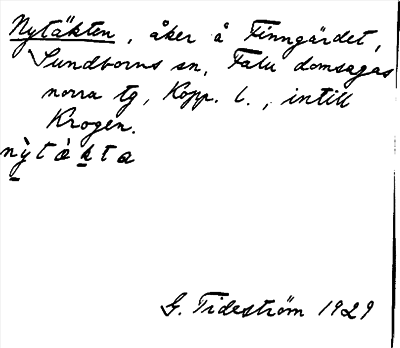 Nytäkten, åker å Finngärdet,
Sundborns sn, Falu domsagas
norra tg, Kopp. l., intill
Krogen.
nỳtä̀kta
G. Tideström 1929